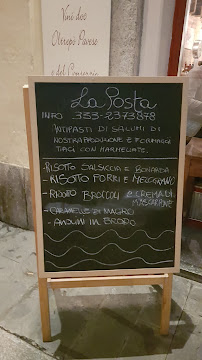 Vini doc
Oltrepò Pavese
e del Consorzio
La Posta
INFO 333-2373878
ANTIPASTI DI SALUMI DI
NOSTRA PRODUZIONE E FORMAGGI
TIPICI CON MARMELLATE.
-RISOTTO SALSICCIA E BONARDA
-RISOTTO PORRI E MELOGRANO
-RISOTTO BROCCOLI E CREMA DI
MASCARPONE
-CARAMELLE DI MAGRO
-ANOLINI IN BRODO